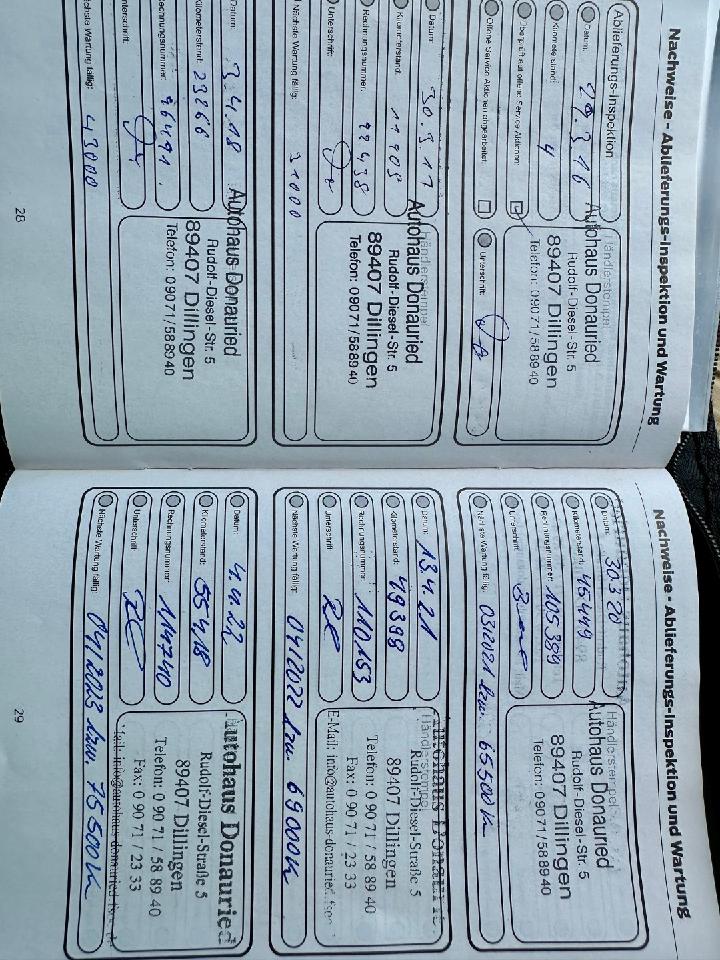 Nachweise - Ablieferungs-Inspektion und Wartung
Ablieferungs-Inspektion
Datum: 29.3.16
Kilometerstand: 4
Überprüft auf offene Service Aktionen:
Offene Service Aktionen abgearbeitet:
Händlerstempel
Autohaus Donauried
Rudolf-Diesel-Str. 5
89407 Dillingen
Telefon: 09071/588940
Unterschrift:
Datum: 30.3.17
Kilometerstand: 11905
Rechnungsnummer: 92438
Unterschrift:
Händlerstempel
Autohaus Donauried
Rudolf-Diesel-Str. 5
89407 Dillingen
Telefon: 09071/588940
Nächste Wartung fällig: 31000
Datum: 3.4.18
Kilometerstand: 23266
Rechnungsnummer: 96491
Unterschrift:
Autohaus Donauried
Rudolf-Diesel-Str. 5
89407 Dillingen
Telefon: 09071/588940
Nächste Wartung fällig: 43000
28
Nachweise - Ablieferungs-Inspektion und Wartung
Datum: 30.3.20
Kilometerstand: 45499
Rechnungsnummer: 105389
Unterschrift:
Händlerstempel
Autohaus Donauried
Rudolf-Diesel-Str. 5
89407 Dillingen
Telefon: 09071/588940
Nächste Wartung fällig: 03/2021 bzw. 65500 K
Datum: 13.4.21
Kilometerstand: 49398
Rechnungsnummer: 110153
Unterschrift:
Händlerstempel
Autohaus Donauried
Rudolf-Diesel-Straße 5
89407 Dillingen
Telefon: 0 90 71 / 58 89 40
Fax: 0 90 71 / 23 33
E-Mail: info@autohaus-donauried.
Nächste Wartung fällig: 04/2022 bzw. 69000 K
Datum: 4.4.22
Kilometerstand: 55418
Rechnungsnummer: 114740
Unterschrift:
Autohaus Donauried
Rudolf-Diesel-Straße 5
89407 Dillingen
Telefon: 0 90 71 / 58 89 40
Fax: 0 90 71 / 23 33
Mail: info@autohaus-donauried.
Nächste Wartung fällig: 04/2023 bzw. 75500 K
29